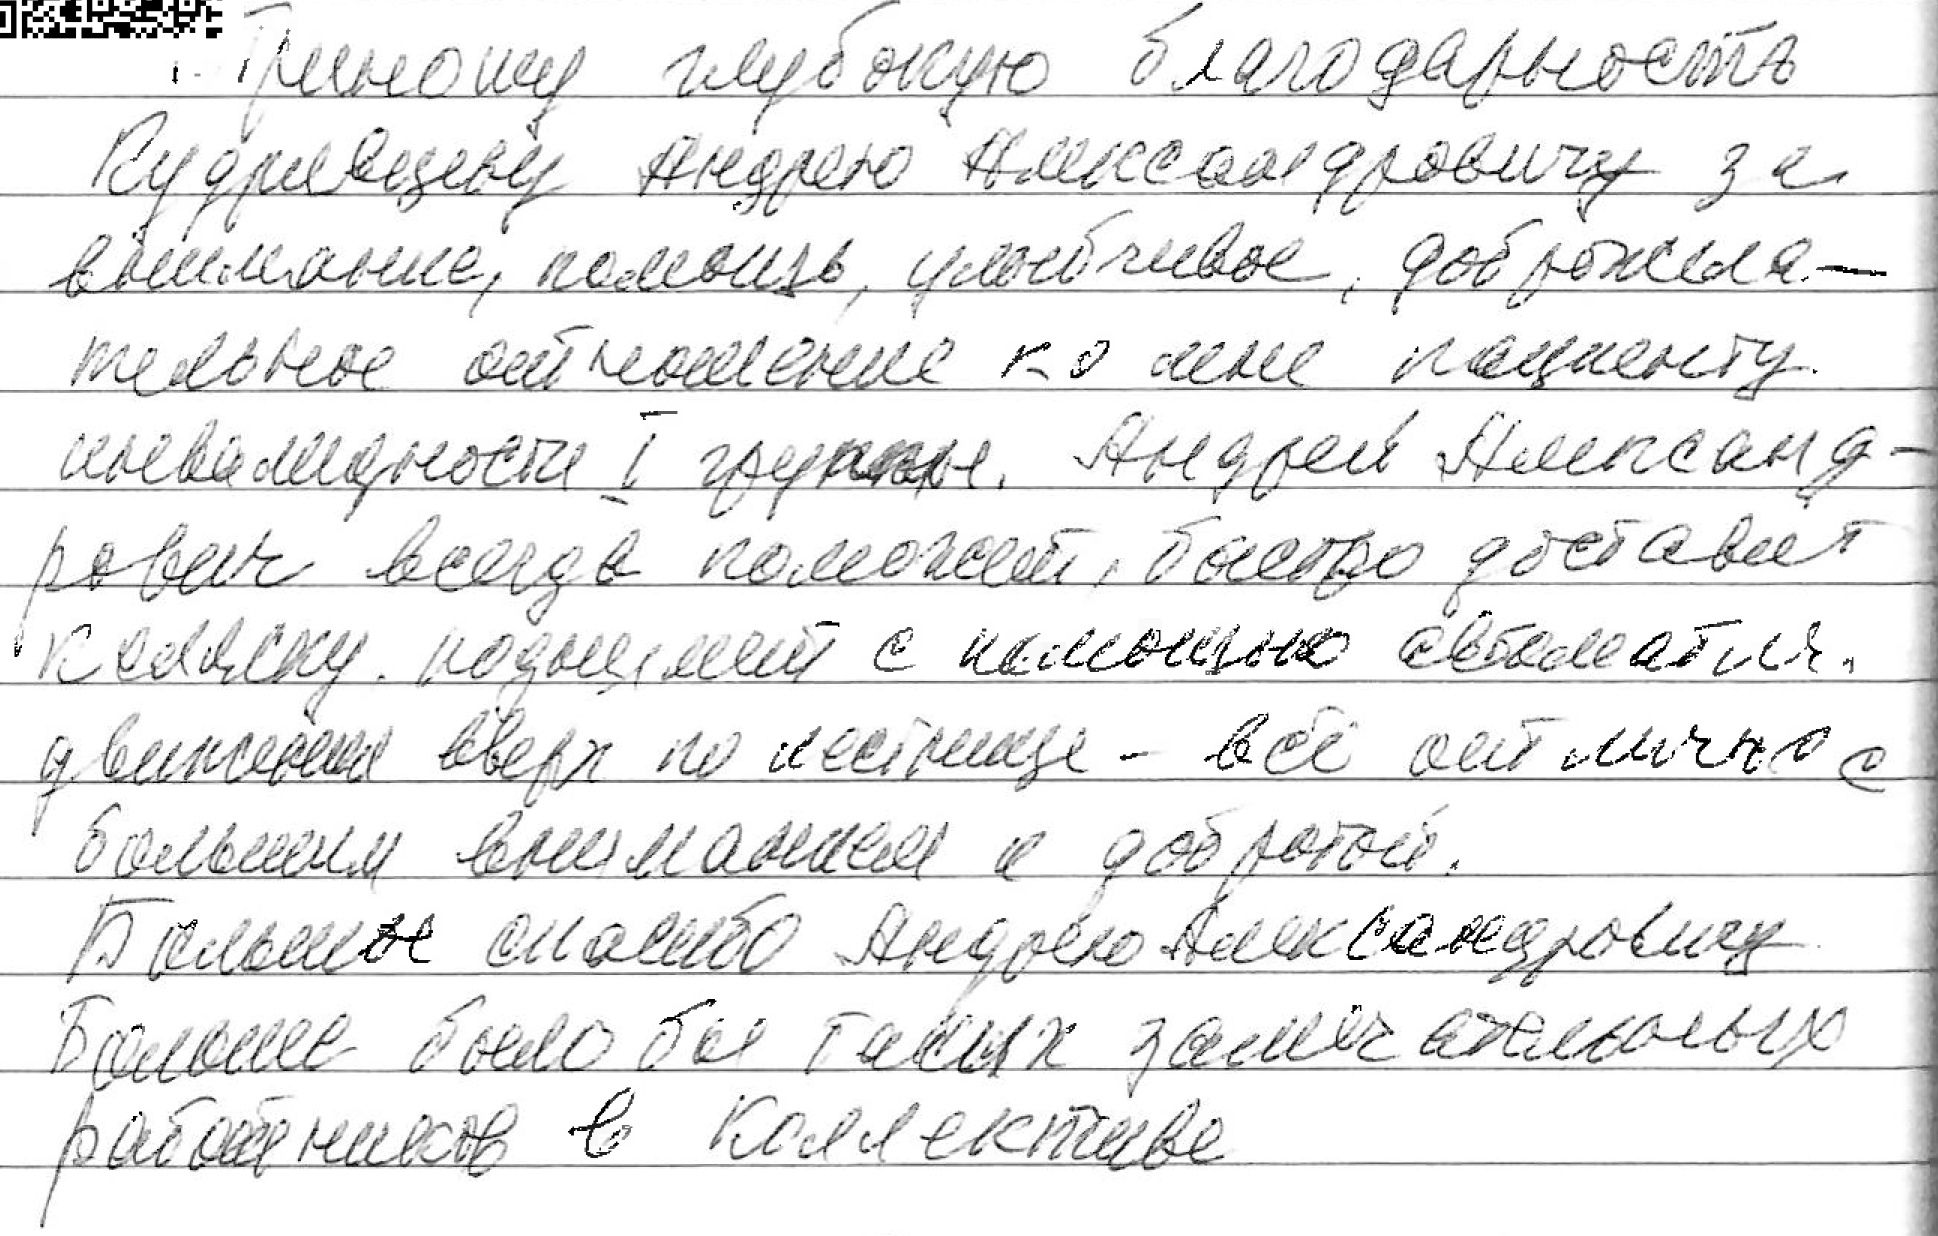 Приношу глубокую благодарность
Кудрявцеву Андрею Александровичу за
внимание, помощь, улыбчивое, доброжела-
тельное отношение ко мне пациенту
инвалидности I группы. Андрей Александ-
рович всегда поможет, быстро доставит
коляску. поднимет с помощью автоматич.
движения вверх по лестнице - всё отлично с
большим вниманием и добротой.
Большое спасибо Андрею Александровичу
Больше было бы таких замечательных
работников в коллективе